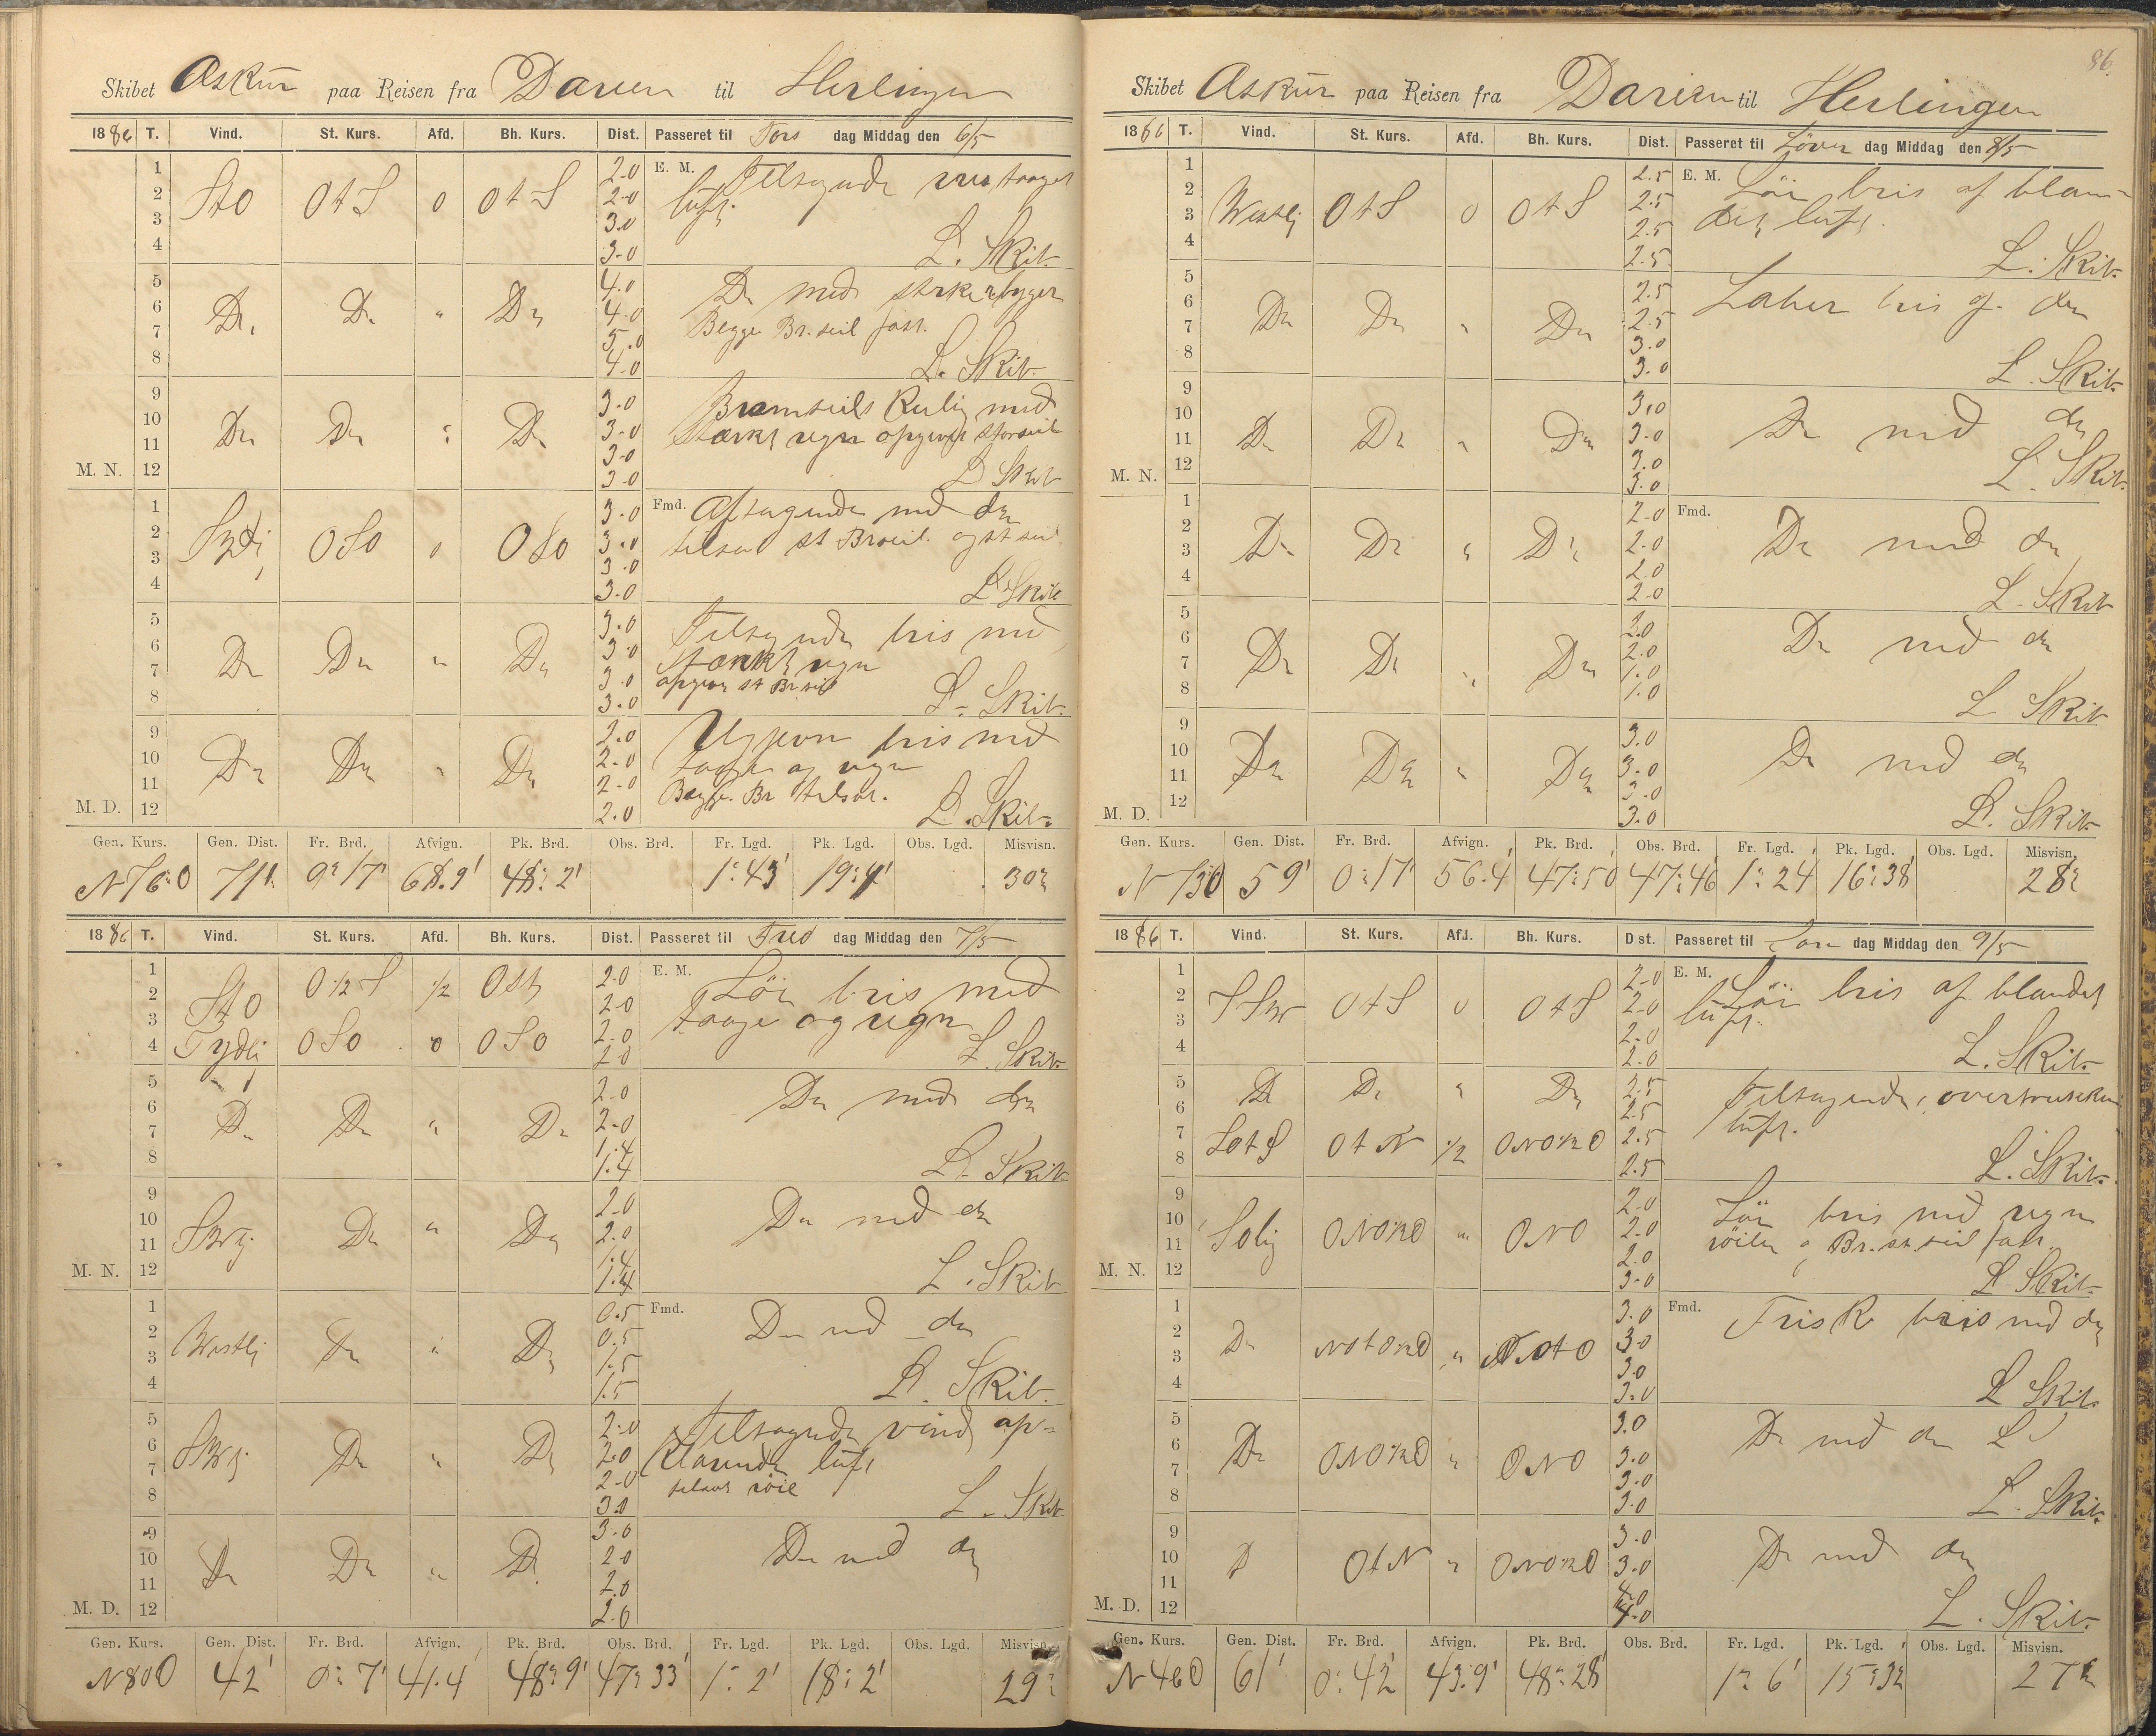 Skibet Askur paa Reisen fra Darien til Herlingen
1886 T. Vind. St. Kurs. Afd. Bh. Kurs. Dist. Passeret til Tors dag Middag den 6/5
1 2.0 E. M. Tiltagende taaget
2 StO OtS 0 OtS 2.0 luft.
3 3.0
4 3.0 L. Skib.
5 4.0 Do med byger
6 Do Do " Do 4.0 Begge Br. seil fast.
7 5.0
8 4.0 L. Skib.
9 3.0 Bramseils Kuling med
10 Do Do " Do 3.0 Stærkt regn opgivet Storseil
11 3.0
M. N. 12 3.0 L Skib
1 3.0 Fmd. Aftagende med do
2 Sydlig OSO 0 OSO 3.0 st Brseil og st seil
3 3.0
4 3.0 L Skib
5 3.0 Tiltagende bris med
6 Do Do " Do 3.0 Stærkt regn
7 3.0 st Br seil
8 3.0 L. Skib.
9 2.0 Ujevn bris med
10 Do Do " Do 2.0 taage og regn
11 2.0 Begge Br tilsat.
M. D. 12 2.0 L. Skib.
Gen. Kurs. Gen. Dist. Fr. Brd. Afvign. Pk. Brd. Obs. Brd. Fr. Lgd. Pk. Lgd. Obs. Lgd. Misvisn.
N76O 71' 0°17' 68.9' 48°2' 1°43' 19°4' 30°
1886 T. Vind. St. Kurs. Afd. Bh. Kurs. Dist. Passeret til Fre dag Middag den 7/5
1 O 1/2 S 1/2 Ost 2.0 E. M. Lör bris med
2 StO 2.0 taage og regn
3 2.0
4 Sydlig OSO 0 OSO 2.0 L. Skib.
5 2.0 Do med do
6 Do Do " Do 2.0
7 1.4
8 1.4 L. Skib
9 2.0 Do med do
10 Do " Do 2.0
11 1.4
M. N. 12 1.4 L. Skib
1 0.5 Fmd. Do med do
2 Westlig Do " Do 0.5
3 1.5
4 1.5 L. Skib.
5 2.0 Tiltagende vind, op=
6 Do " Do 2.0 Klarende luft
7 2.0 tilsat röil
8 3.0 L. Skib
9 3.0 Do med do
10 Do Do " Do 2.0
11 2.0
M. D. 12 2.0
Gen. Kurs. Gen. Dist. Fr. Brd. Afvign. Pk. Brd. Obs. Brd. Fr. Lgd. Pk. Lgd. Obs. Lgd. Misvisn.
N80O 42' 0°7' 41.4 48°9' 47°33' 1°2' 18°2' 29°
86.
Skibet Askur paa Reisen fra Darien til Herlingen
1886 T. Vind. St. Kurs. Afd. Bh. Kurs. Dist. Passeret til Löver dag Middag den 8/5
1 2.5 E. M. Lör bris af blan=
2 Westlig OtS 0 OtS 2.5 det luft.
3 2.5
4 2.5 L. Skib.
5 2.5 Laber bris og do
6 Do Do " Do 2.5
7 3.0
8 3.0 L. Skib.
9 3.0 Do med do
10 Do Do " Do 3.0
11 3.0
M. N. 12 3.0 L. Skib.
1 2.0 Fmd. Do med do
2 Do Do " Do 2.0
3 2.0
4 2.0 L. Skib
5 2.0 Do med do
6 Do Do " Do 2.0
7 1.0
8 1.0 L Skib
9 3.0 Do med do
10 Do Do " Do 3.0
11 3.0
M. D. 12 3.0 L. Skib.
Gen. Kurs. Gen. Dist. Fr. Brd. Afvign. Pk. Brd. Obs. Brd. Fr. Lgd. Pk. Lgd. Obs. Lgd. Misvisn.
N73O 59' 0°17' 56.4' 47°50' 47°46' 1°24 16°38' 28°
1886 T. Vind. St. Kurs. Afd. Bh. Kurs. Dist. Passeret til Sön dag Middag den 9/5
1 2.0 E. M. Lör bris af blandet
2 SSW OtS 0 OtS 2.0 luft.
3 2.0
4 2.0 L. Skib.
5 Do Do " Do 2.5 Tiltagende, overtrukken
6 2.5 luft.
7 SOtS OtN 1/2 ONO1/2O 2.5
8 2.5 L. Skib.
9 2.0 Lör bris med regn
10 SOlig ONO1/2O " ONO 2.0 röilen og Br. st. seil fast.
11 2.0
M. N. 12 3.0 L Skib.
1 3.0 Fmd. Frisk bris med do
2 Do NOtO1/2O " NOtO 3.0
3 3.0
4 3.0 L Skib.
5 3.0 Do med do
6 Do ONO1/2O " ONO 3.0
7 3.0
8 3.0 L. Skib.
9 3.0 Do med do
10 D OtN " ONO1/2O 3.0
11 4.0
M. D. 12 4.0 L. Skib.
Gen. Kurs. Gen. Dist. Fr. Brd. Afvign. Pk. Brd. Obs. Brd. Fr. Lgd. Pk. Lgd. Obs. Lgd. Misvisn.
N46O 61' 0°42' 43.9' 48°28' 1°6' 15°32 27°